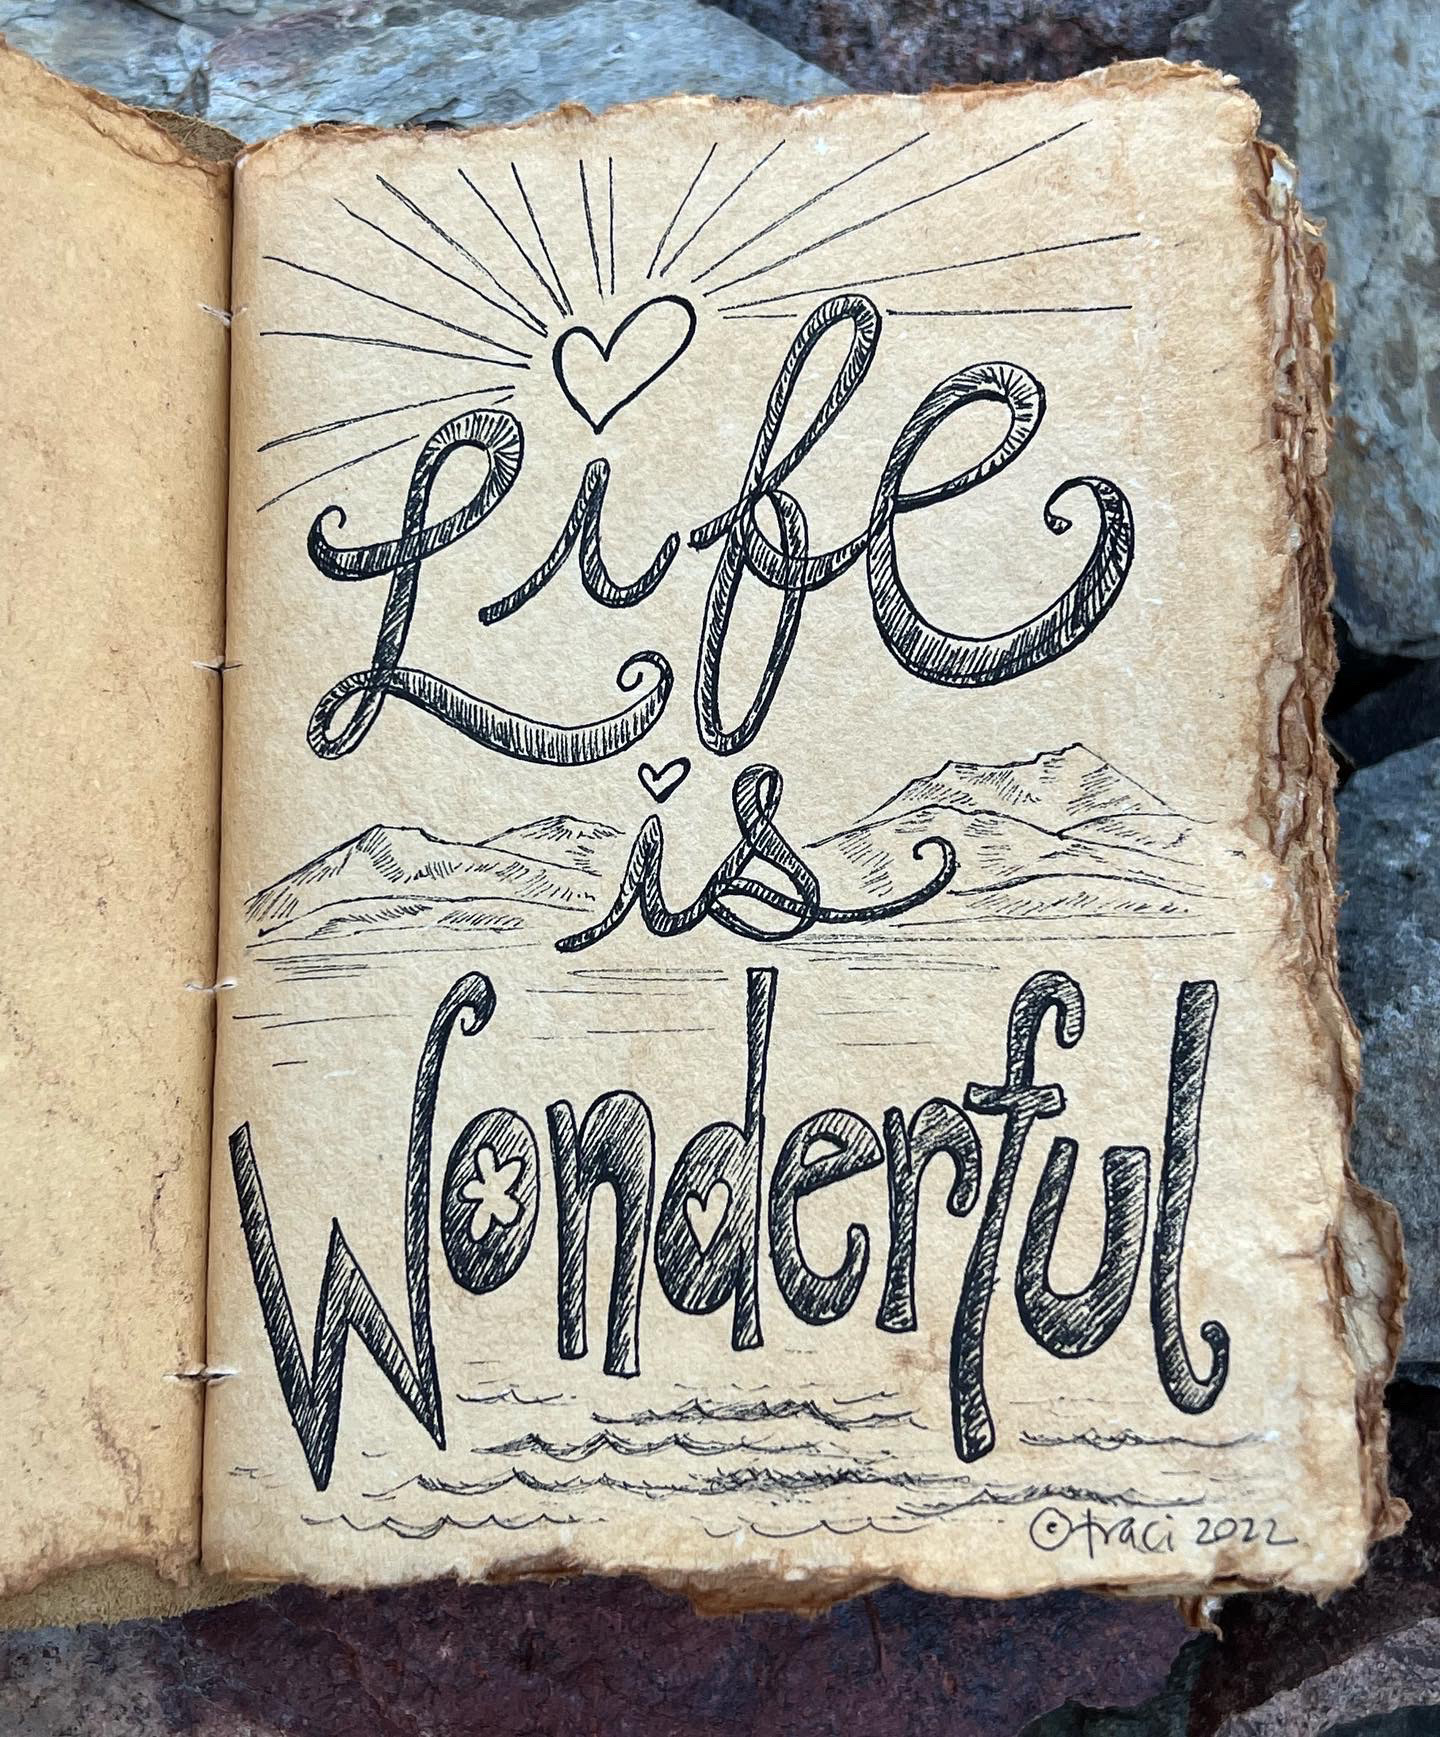 Life
is
Wonderful
©traci 2022